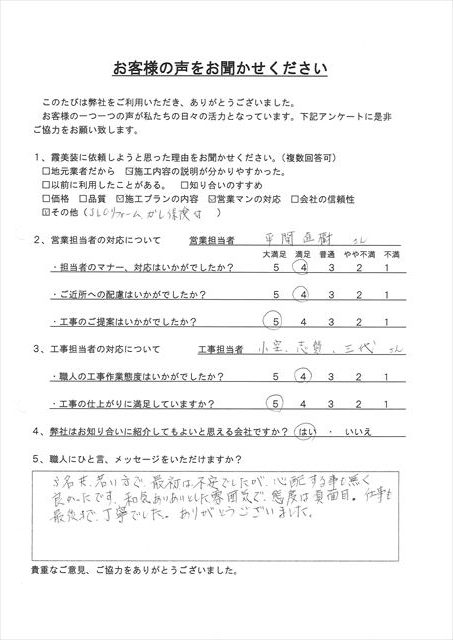 お客様の声をお聞かせください
このたびは弊社をご利用いただき、ありがとうございました。
お客様の一つ一つの声が私たちの日々の活力となっています。下記アンケートに是非
ご協力をお願い致します。
1、霞美装に依頼しようと思った理由をお聞かせください。（複数回答可）
□地元業者だから ☑施工内容の説明が分かりやすかった。
□以前に利用したことがある。 □知り合いのすすめ
□価格 □品質 ☑施工プランの内容 ☑営業マンの対応 □会社の信頼性
☑その他（
2、営業担当者の対応について 営業担当者 平間直樹 さん
大満足 満足 普通 やや不満 不満
・担当者のマナー、対応はいかがでしたか？ 5 4 3 2 1
・ご近所への配慮はいかがでしたか？ 5 4 3 2 1
・工事のご提案はいかがでしたか？ 5 4 3 2 1
3、工事担当者の対応について 工事担当者 小室、志賀、三代 さん
・職人の工事作業態度はいかがでしたか？ 5 4 3 2 1
・工事の仕上がりに満足していますか？ 5 4 3 2 1
4、弊社はお知り合いに紹介してもよいと思える会社ですか？ はい ・ いいえ
5、職人にひと言、メッセージをいただけますか？
3名共、若い方で、最初は不安でしたが、心配する事も無く
良かったです。和気あいあいとした雰囲気で、態度は真面目。仕事も
最後まで、丁寧でした。ありがとうございました。
貴重なご意見、ご協力をありがとうございました。